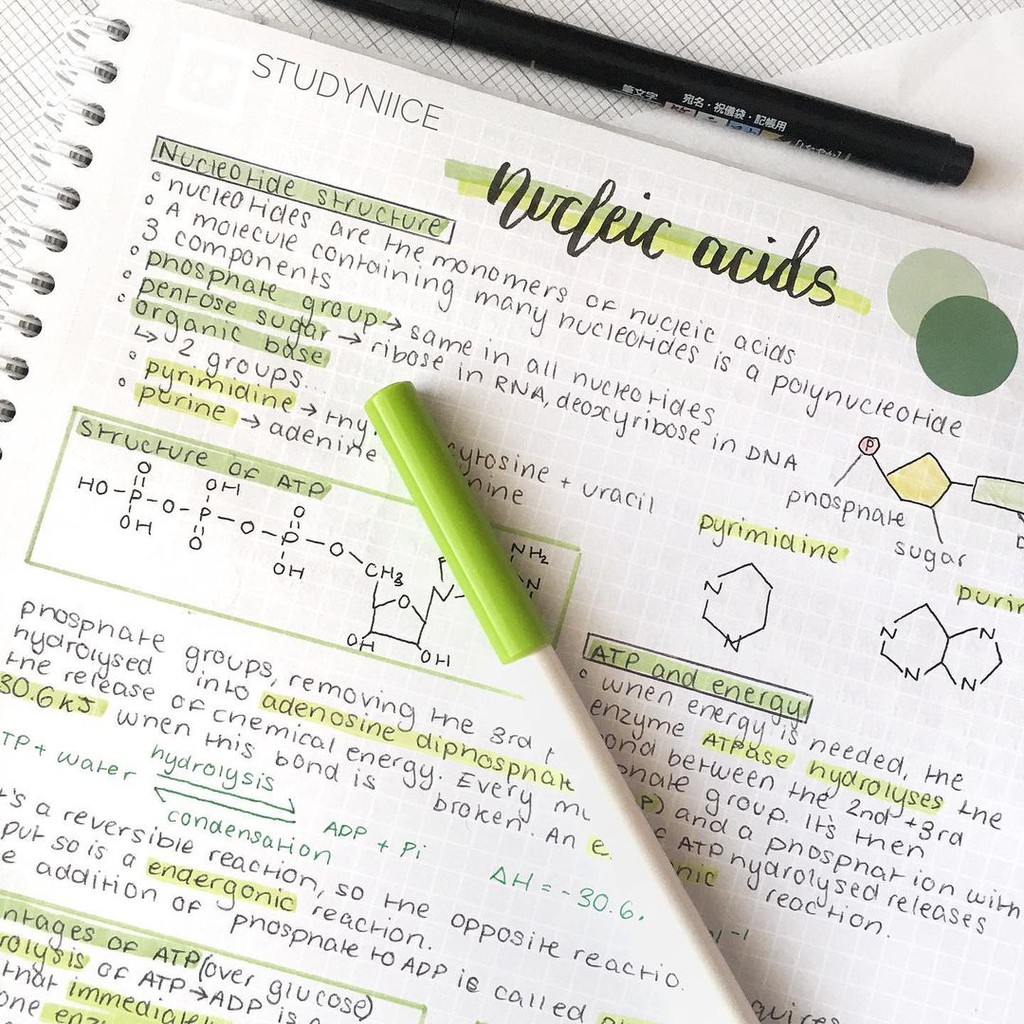 STUDYNIICE
筆文字 宛名・祝儀袋・記帳用
nucleic acids
Nucleotide structure
◦ nucleotides are the monomers of nucleic acids
◦ A molecule containing many nucleotides is a polynucleotide
3 components
◦ phosphate group → same in all nucleotides
◦ pentose sugar → ribose in RNA, deoxyribose in DNA
◦ organic base
↳ 2 groups...
◦ pyrimidine → thy cytosine + uracil
◦ purine → adenine
P
phosphate
sugar
pyrimidine
N
N
N
N
N
N
Structure of ATP
HO-P-O-P-O-P-O
O
OH
OH
O
O
OH
CH3
O
N
NH2
N
OH
OH
phosphate groups, removing the 3rd
hydrolysed into adenosine diphosphate
the release of chemical energy. Every
30.6kJ when this bond is broken. An
TP + water hydrolysis ADP + Pi
condensation
ΔH = -30.6
a reversible reaction, so the opposite
but so is a endergonic reaction.
addition of phosphate to ADP is called
ATP and energy
◦ when energy is needed, the
enzyme ATPase hydrolyses the
between the 2nd +3rd
group. It's then
and a phosphat ion with
ATP hydrolysed releases
reaction.
of ATP (over glucose)
of ATP→ADP is
that
one